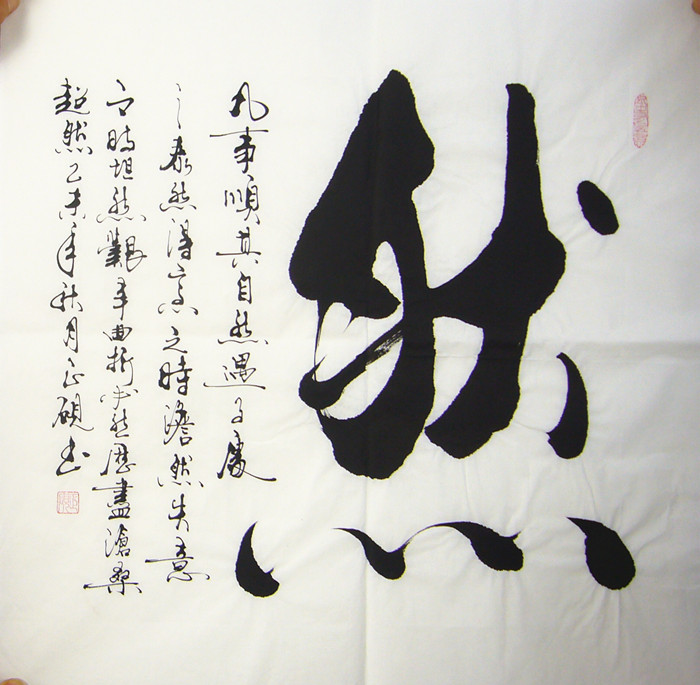 然
凡事順其自然遇事處
之泰然得意之時澹然失意
之時坦然艱辛曲折必然歷盡滄桑
超然乙未年秋月硯書